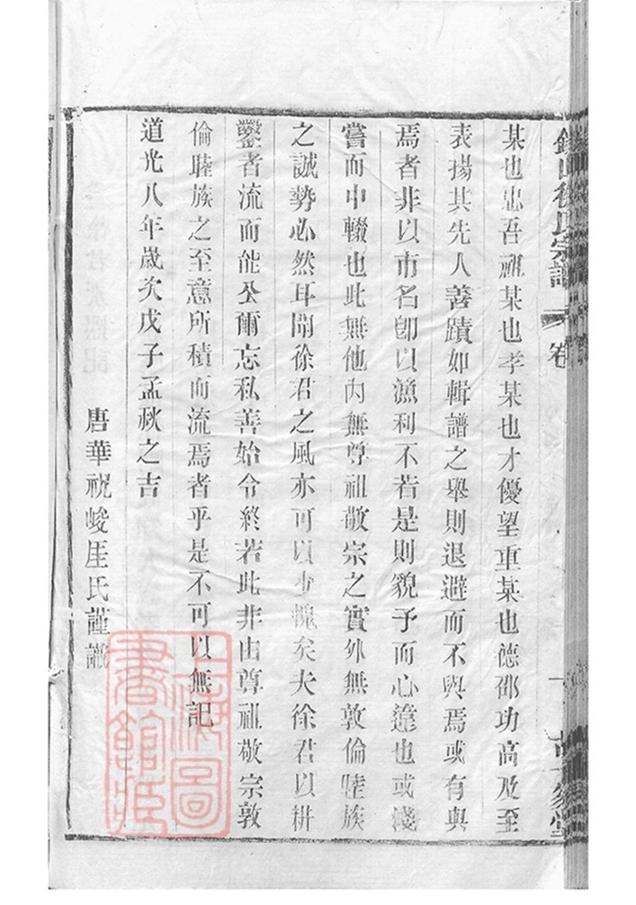 徐氏宗譜 卷
某也忠吾祖某也孝某也才優望重某也德邵功高及至
表揚其先人善蹟如輯譜之舉則退避而不與焉或有與
焉者非以市名卽以漁利不若是則貌予而心違也或淺
嘗而中輟也此無他內無尊祖敬宗之實外無敦倫睦族
之誠勢必然耳聞徐君之風亦可以少愧矣夫徐君以耕
鑿者流而能公爾忘私善始令終若此非由尊祖敬宗敦
倫睦族之至意所積而流焉者乎是不可以無記
道光八年歲次戊子孟秋之吉
唐華祝峻厓氏謹識
上海圖
書館藏